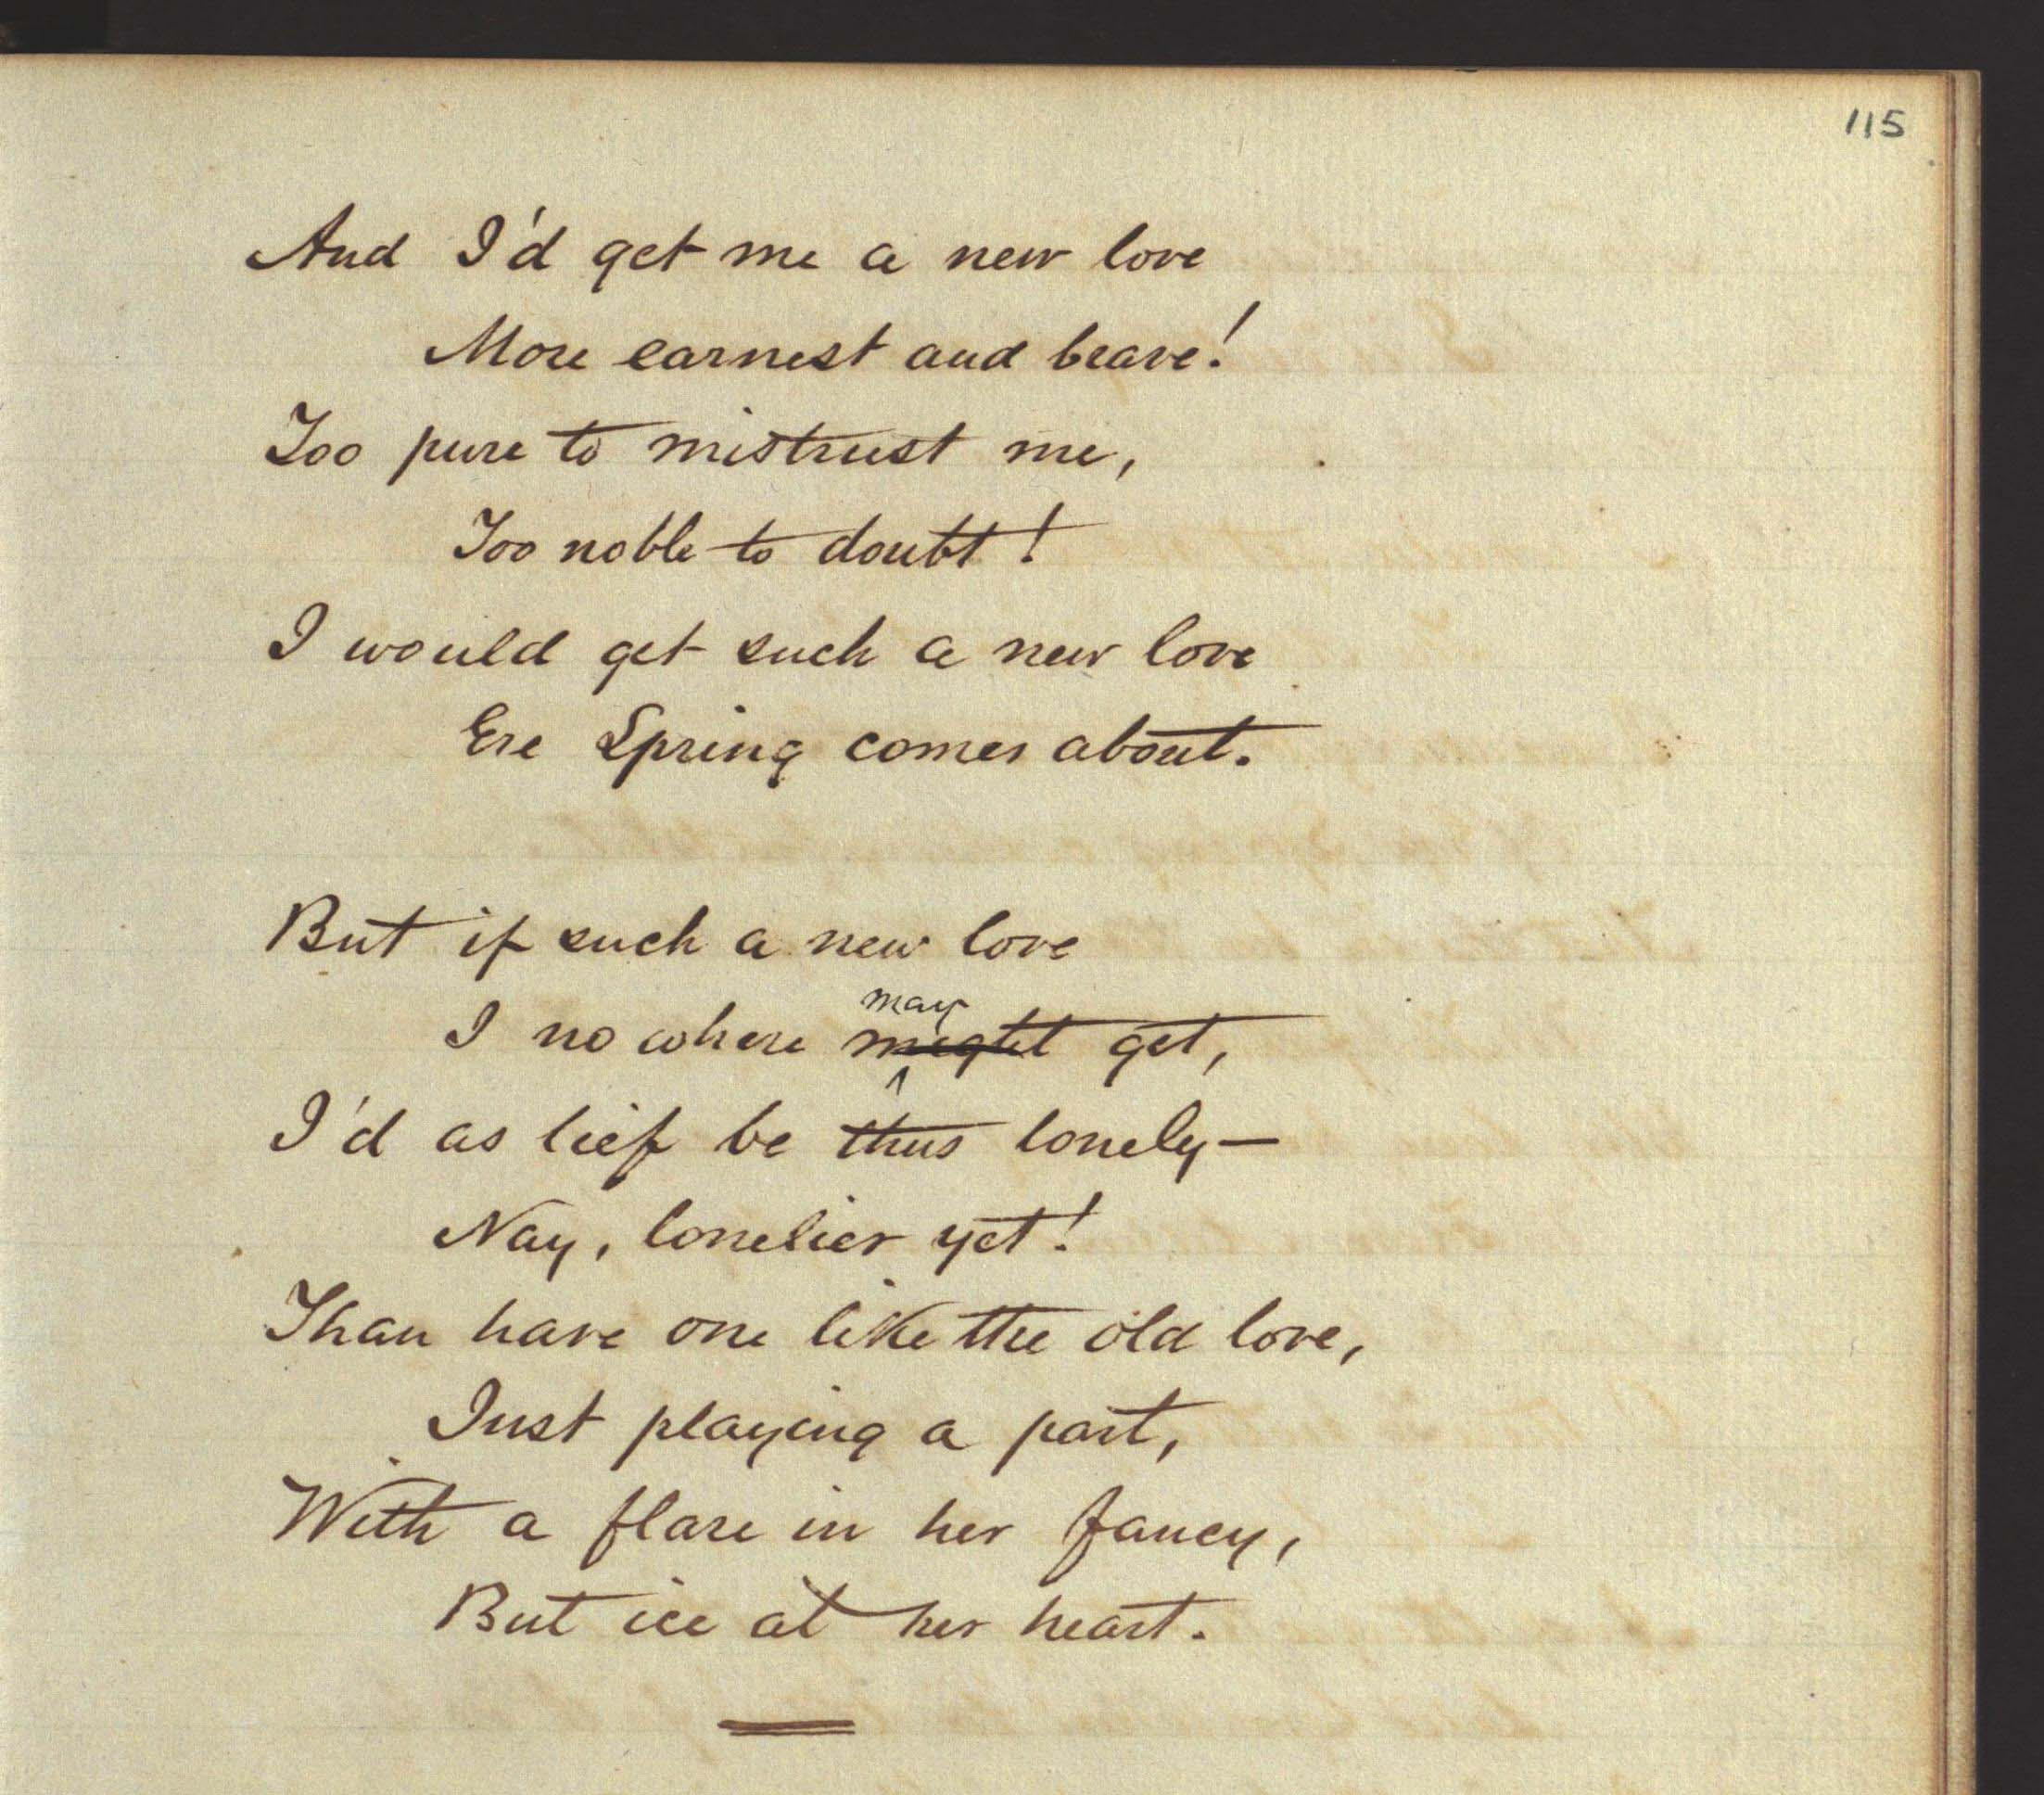 115
And I'd get me a new love
More earnest and brave!
Too pure to mistrust me,
Too noble to doubt!
I would get such a new love
Ere Spring comes about.
But if such a new love
may
I no where might get,
I'd as lief be thus lonely—
Nay, lonelier yet!
Than have one like the old love,
Just playing a part,
With a flare in her fancy,
But ice at her heart.